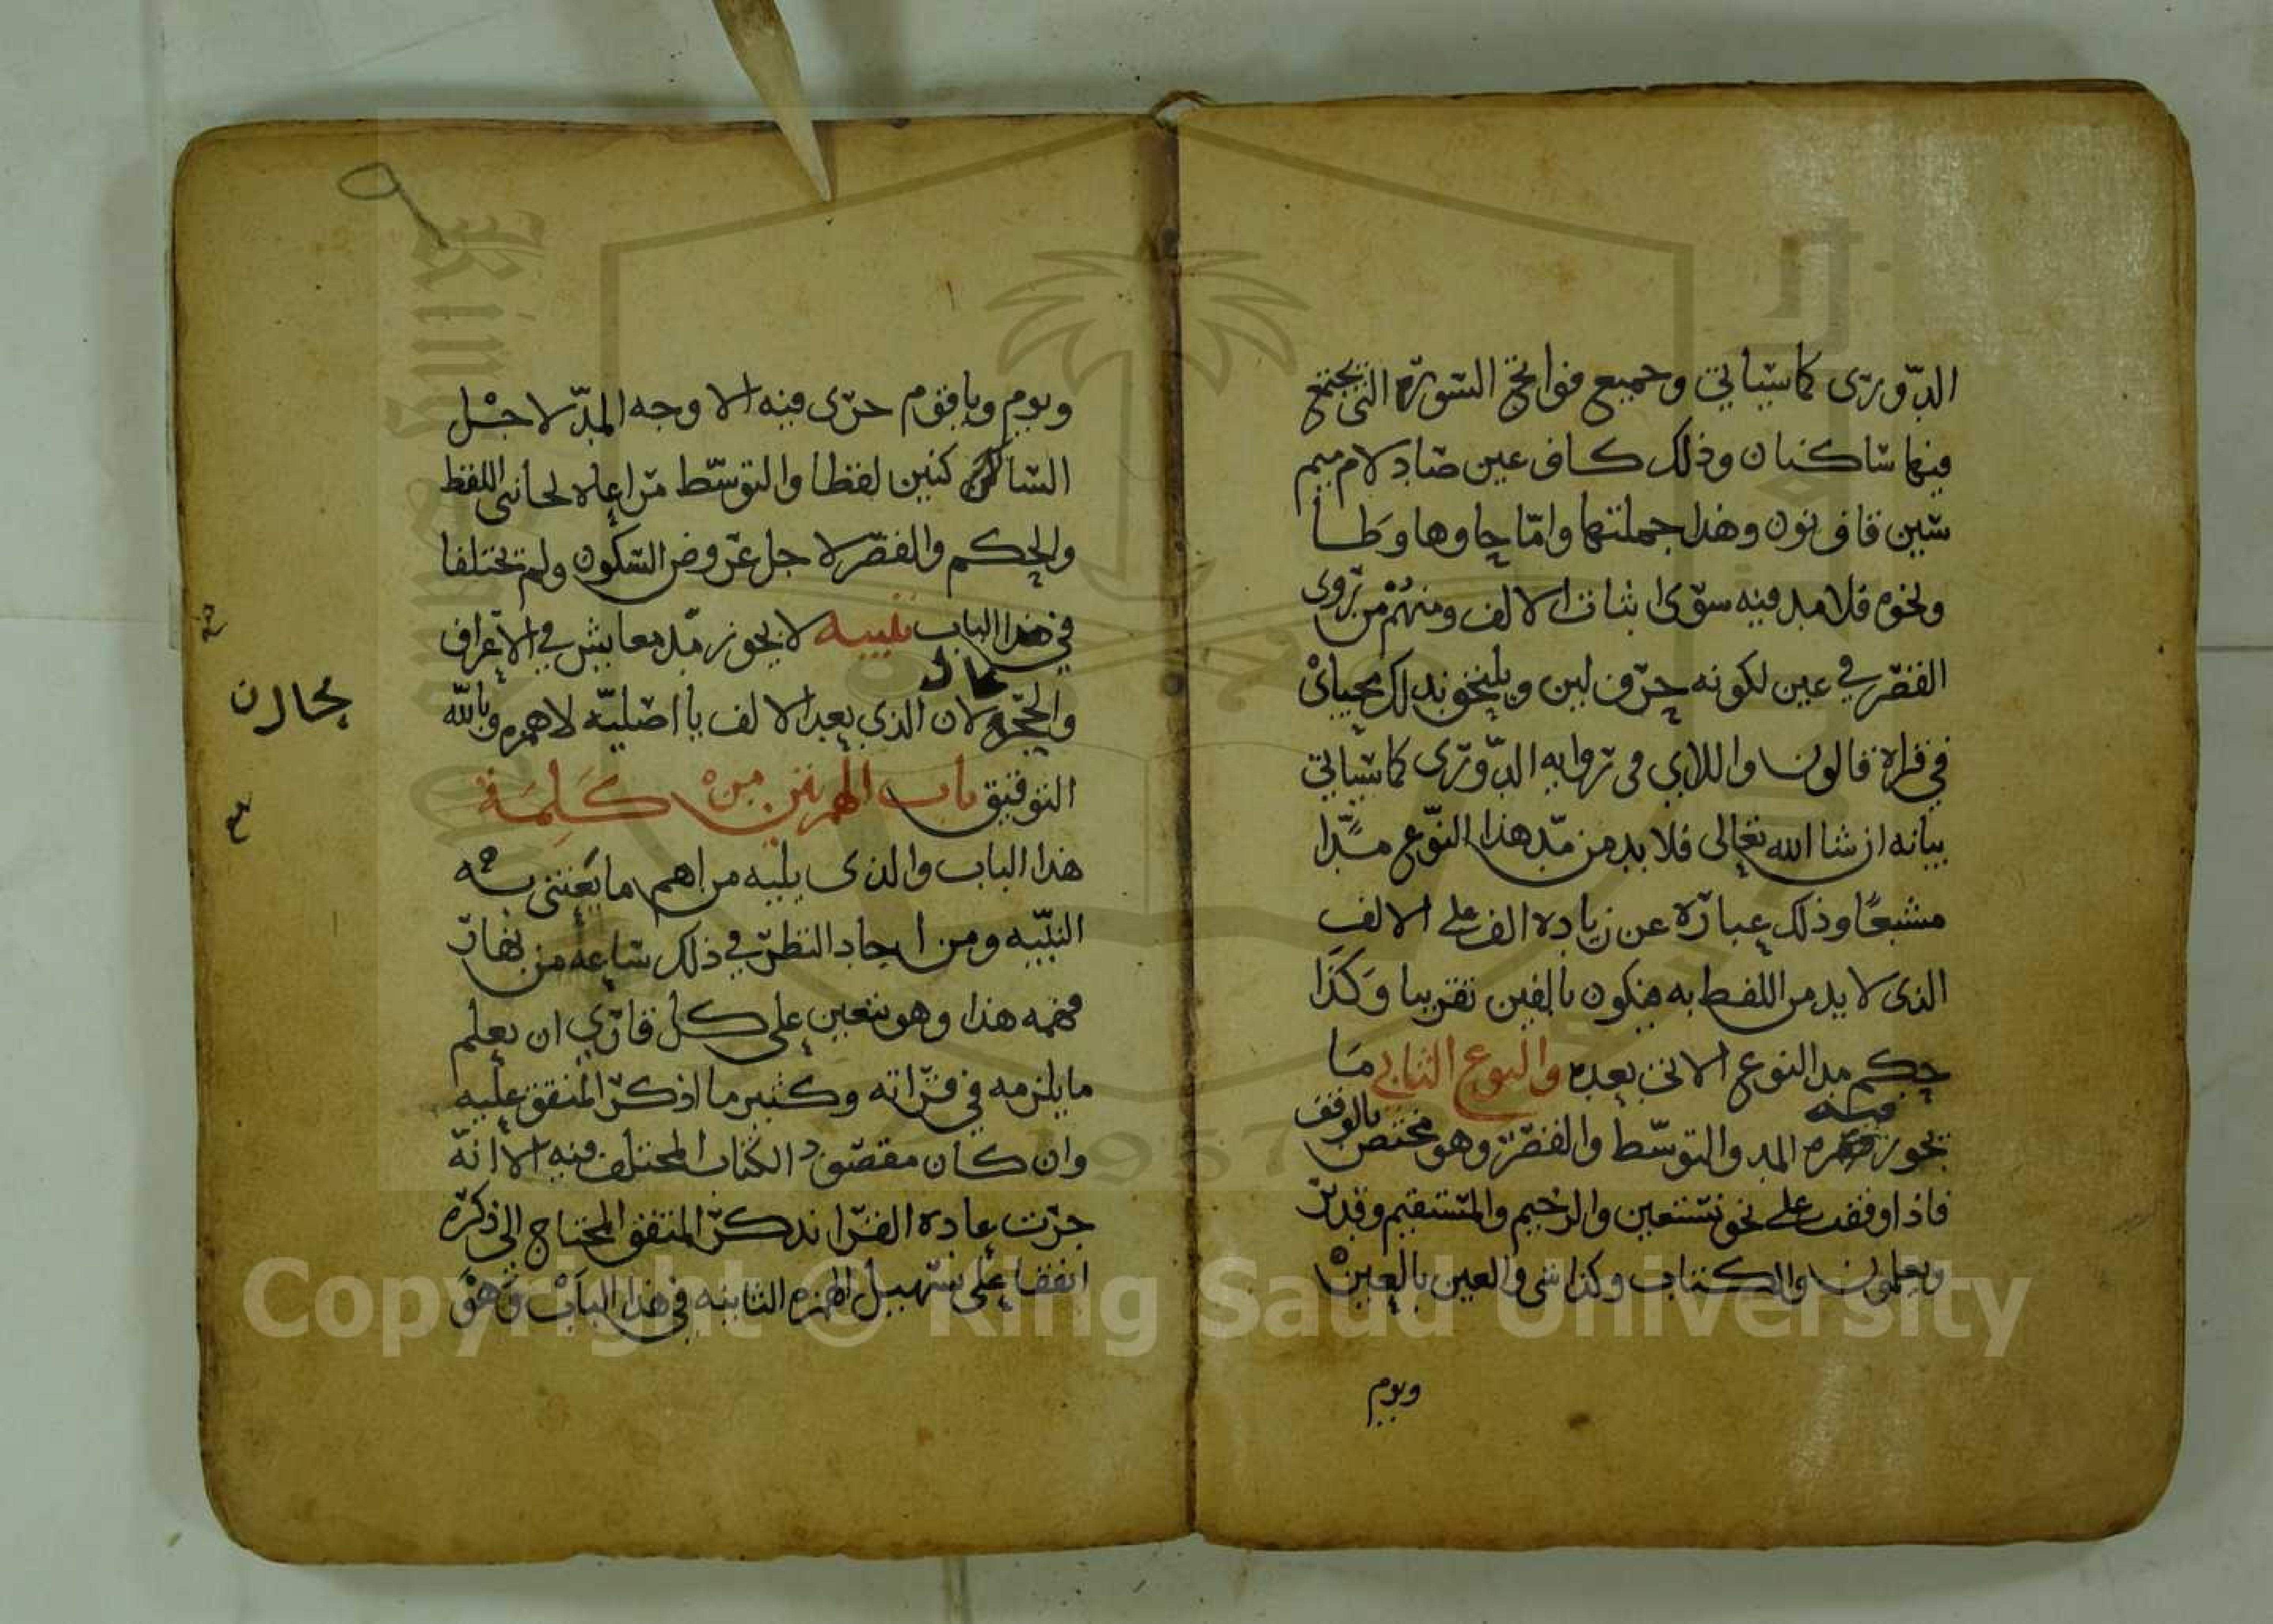 الدّوري كما سيأتي وجميع فواتح السورة التي يجتمع
فيها ساكنان وذلك كاف عين صاد لام ميم
سين قاف نون وهذا جملتها وامّا حا وها وطا
ونحوه فلا مد فيه سوى اثبات الالف ومنهم من روى
القصر في عين لكونه حرف لين ويلتحق بذلك محياي
في قراة قالون واللاي في رواية الدّوري كما سيأتي
بيانه ان شا الله تعالى فلا بد من مدّ هذا النوع مدّا
مشبعًا وذلك عبارة عن زيادة الف على الالف
الذي لا بد من اللفظ به فيكون بالفين تقريبا وكذا
حكم مد النوع الاتي بعده والنوع الثاني ما
يجوز فيه المد والتوسّط والقصر وهو مختص بالوقف
فاذا وقفت على نحو نستعين والرحيم والمستقيم وقدير
ويعلمون والكتاب وكذا شي والعين بالعين
ويوم
ويوم ويا قوم جرى فيه الاوجه المدّ لاجل
كنين لفظا والتوسّط مراعاه لجانبي اللفظ
والحكم والقصر لاجل عروض السكون ولم يختلفا
في هذا الباب تنبيه لا يجوز مدّ معايش في الاعراف
والحجر لان الذي بعد الالف يا اصليّه لا همزه وبالله
التوفيق باب الهمزتين من كلمة
هذا الباب والذي يليه من اهم ما يعتني به
النبيه ومن اجاد النظر في ذلك ساعه من نهار
فهمه هذا وهو متعين على كل قاري ان يعلم
ما يلزمه في قراته وكثير ما اذكر المتفق عليه
وان كان مقصود الكتاب المختلف فيه الا انه
جرت عادة القرا بذكر المتفق المحتاج الى ذكره
اتفقا على تسهيل الهمزه الثانيه في هذا الباب وهو
Copyright © King Saud University
1957